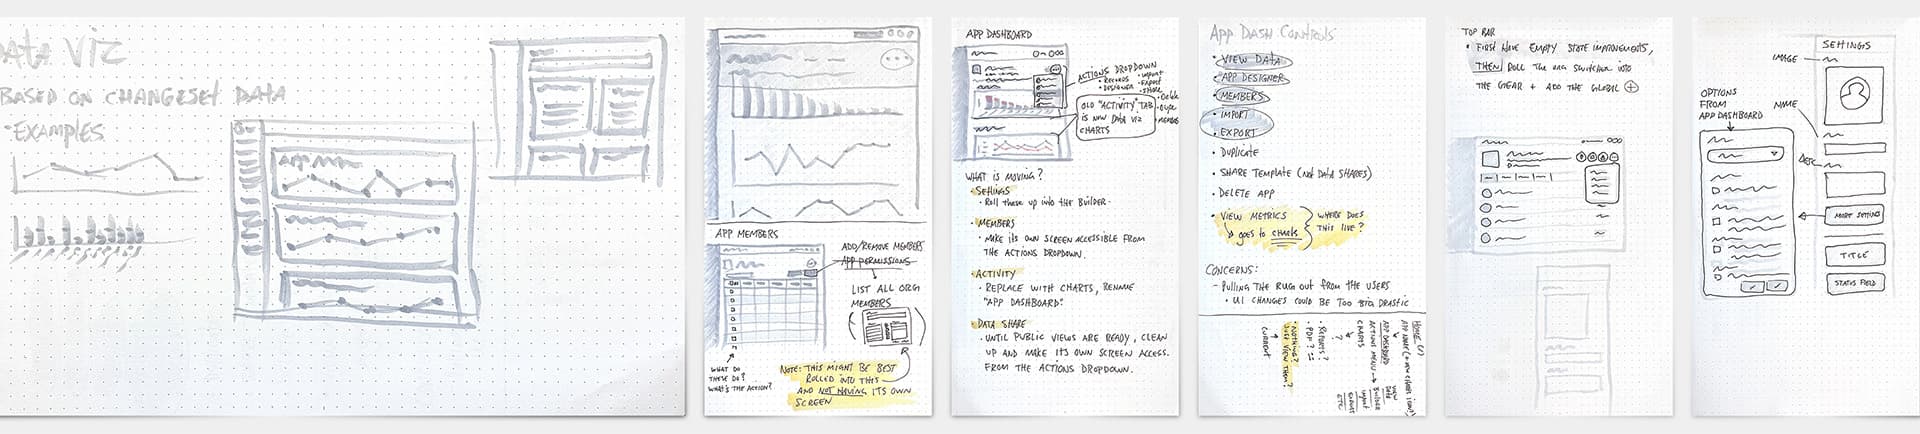 DATA VIZ
BASED ON CHANGESET DATA
• EXAMPLES
APP
APP MEMBERS
ADD/REMOVE MEMBERS
APP PERMISSIONS
LIST ALL ORG
MEMBERS
WHAT DO
THESE DO?
WHAT'S THE ACTION?
NOTE: THIS MIGHT BE BEST
ROLLED INTO THIS
AND NOT HAVING ITS OWN
SCREEN
APP DASHBOARD
ACTIONS DROPDOWN
• RECORDS
• DESIGNER
• IMPORT
• EXPORT
• SHARE
• Delete
• MEMBERS
OLD "ACTIVITY" TAB
IS NEW DATA VIZ
CHARTS
WHAT IS MOVING?
• SETTINGS
• Roll these up into the BUILDER.
• MEMBERS
• MAKE ITS OWN SCREEN ACCESSIBLE FROM
THE ACTIONS DROPDOWN.
• ACTIVITY
• REPLACE WITH CHARTS, RENAME
"APP DASHBOARD"
• DATA SHARE
• UNTIL PUBLIC VIEWS ARE READY, CLEAN
UP AND MAKE ITS OWN SCREEN ACCESS.
FROM THE ACTIONS DROPDOWN.
APP DASH CONTROLS
• VIEW DATA
• APP DESIGNER
• MEMBERS
• IMPORT
• EXPORT
• DUPLICATE
• SHARE TEMPLATE (not DATA SHARES)
• DELETE APP
• VIEW METRICS
↳ goes to CHARTS
WHERE DOES
THIS LIVE?
CONCERNS:
- Pulling THE RUG OUT FROM THE USERS
• UI CHANGES COULD BE TOO BIG DRASTIC
HOME
APP DASHBOARD
ACTIONS MENU → BUILDER
VIEW
DATA
IMPORT
EXPORT
ETC
CHARTS
?
• REPORTS?
• PDP?
• NOTHING?
JUST VIEW THEM?
CURRENT
TOP BAR
• FIRST HAVE EMPTY STATE IMPROVEMENTS,
THEN ROLL THE ORG SWITCHER INTO
THE GEAR + ADD THE GLOBAL ⊕
SETTINGS
IMAGE
OPTIONS
FROM
APP DASHBOARD
NAME
DESC
MORE SETTINGS
TITLE
STATUS FIELD